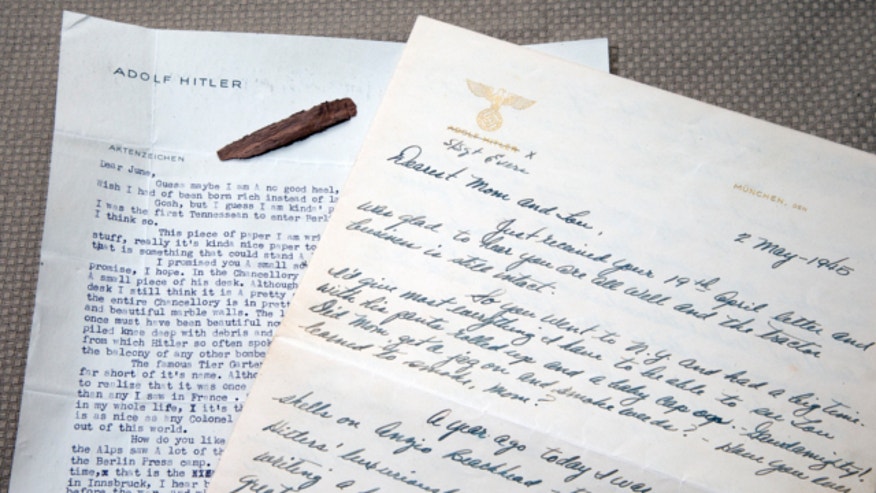 ADOLF HITLER
AKTENZEICHEN
Dear June,
Guess maybe I am A no good heel,
Wish I had of been born rich instead of
Gosh, but I guess I am kinda'
I was the first Tennessean to enter Berlin
I think so.
This piece of paper I am
stuff, really it's kinda nice paper to
that is something that could stand A
I promised you A small
promise, I hope. In the Chancellory
A small piece of his desk. Although
desk I still think it is A pretty
the entire Chancellory is in
and beautiful marble walls. The
once must have been beautiful
piled knee deep with debris and
from which Hitler so often
the balcony of any other
The famous Tier Garten
far short of it's name.
to realize that it was once
than any I saw in France .
in my whole life, I
is as nice as any Colonel
out of this world.
How do you like
the Alps saw A lot of
the Berlin Press camp.
time,x that is the
in Innsbruck, I hear
before the war, and
ADOLF HITLER x
S/Sgt Evers
MÜNCHEN, DEN
2 May-1945
Dearest Mom and Lou,
Just received your 19th April letter and
was glad to hear you are all well and the tractor
business is still intact.
So you went to N.Y. and had a big time.
I'd give most everything to be able to see Lou
with his pants rolled up and a
Did Mom get a jag on and smoke
learned to smoke, Mom?
A year ago today I was
shells on Anzio Beachhead
Hitlers' luxurious
writing a